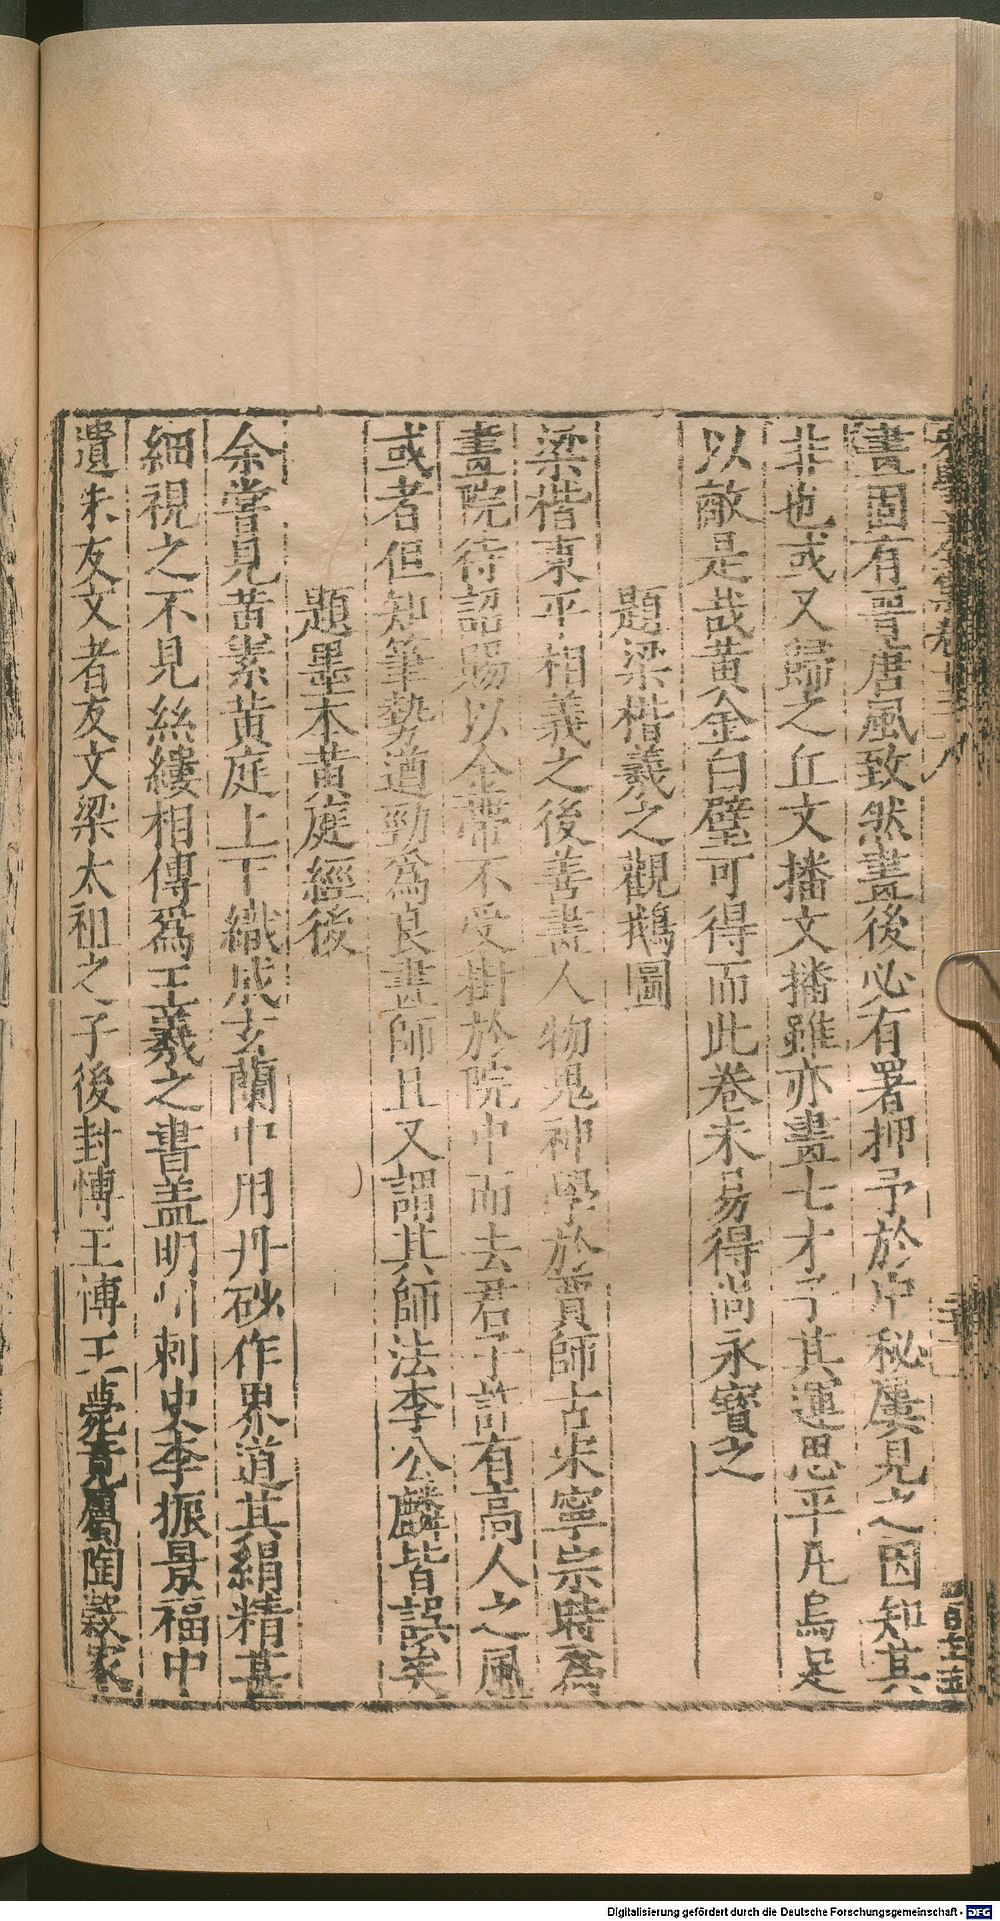 畫固有晉唐風致然畫後必有署押予於中秘屢見之因知其
非也或又歸之丘文播文播雖亦畫七才子其運思平凡烏足
以敵是哉黃金白璧可得而此卷未易得尚永寶之
題梁楷羲之觀鵝圖
梁楷東平相義之後善畫人物鬼神學於賈師古宋寧宗時為
畫院待詔賜以金帶不受掛於院中而去君子許有高人之風
或者但知筆勢遒勁為良畫師且又謂其師法李公麟皆誤矣
題墨本黃庭經後
余嘗見黃素黃庭上下織成玄闌中用丹砂作界道其絹精甚
細視之不見絲縷相傳爲王羲之書盖明州刺史李振景福中
遺朱友文者友文梁太祖之子後封博王博王薨竟屬陶糓家
Digitalisierung gefördert durch die Deutsche Forschungsgemeinschaft - DFG